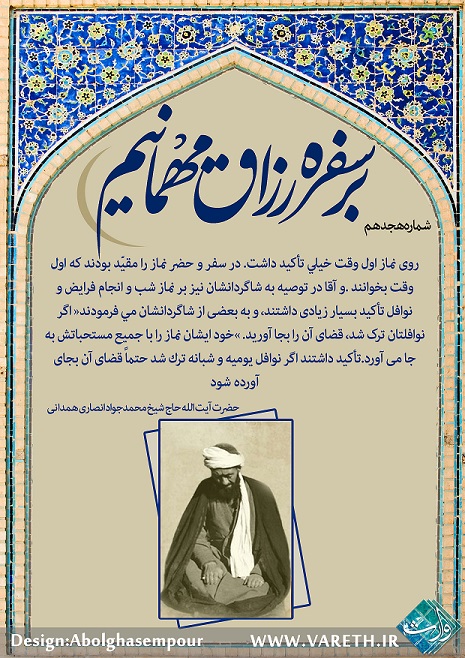 بر سفره رزاق مهمانیم
شماره هجدهم
روی نماز اول وقت خیلي تأکید داشت. در سفر و حضر نماز را مقیّد بودند که اول
وقت بخوانند .و آقا در توصیه به شاگردانشان نیز بر نماز شب و انجام فرایض و
نوافل تأکید بسیار زیادی داشتند، و به بعضی از شاگردانشان می فرمودند« اگر
نوافلتان ترک شد، قضای آن را بجا آورید. »خود ایشان نماز را با جمیع مستحباتش به
جا می آورد.تأکید داشتند اگر نوافل یومیه و شبانه ترك شد حتماً قضای آن بجای
آورده شود
حضرت آیت الله حاج شیخ محمد جواد انصاری همدانی
وارث
Design:Abolghasempour WWW.VARETH.IR